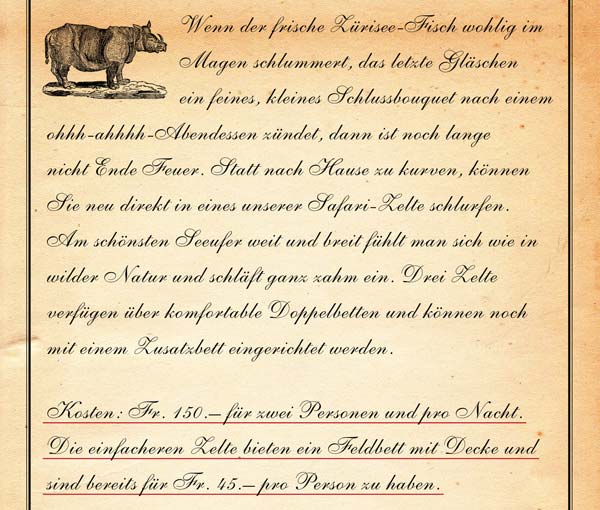 Wenn der frische Zürisee-Fisch wohlig im
Magen schlummert, das letzte Gläschen
ein feines, kleines Schlussbouquet nach einem
ohhh-ahhhh-Abendessen zündet, dann ist noch lange
nicht Ende Feuer. Statt nach Hause zu kurven, können
Sie neu direkt in eines unserer Safari-Zelte schlurfen.
Am schönsten Seeufer weit und breit fühlt man sich wie in
wilder Natur und schläft ganz zahm ein. Drei Zelte
verfügen über komfortable Doppelbetten und können noch
mit einem Zusatzbett eingerichtet werden.
Kosten: Fr. 150.– für zwei Personen und pro Nacht.
Die einfacheren Zelte bieten ein Feldbett mit Decke und
sind bereits für Fr. 45.– pro Person zu haben.